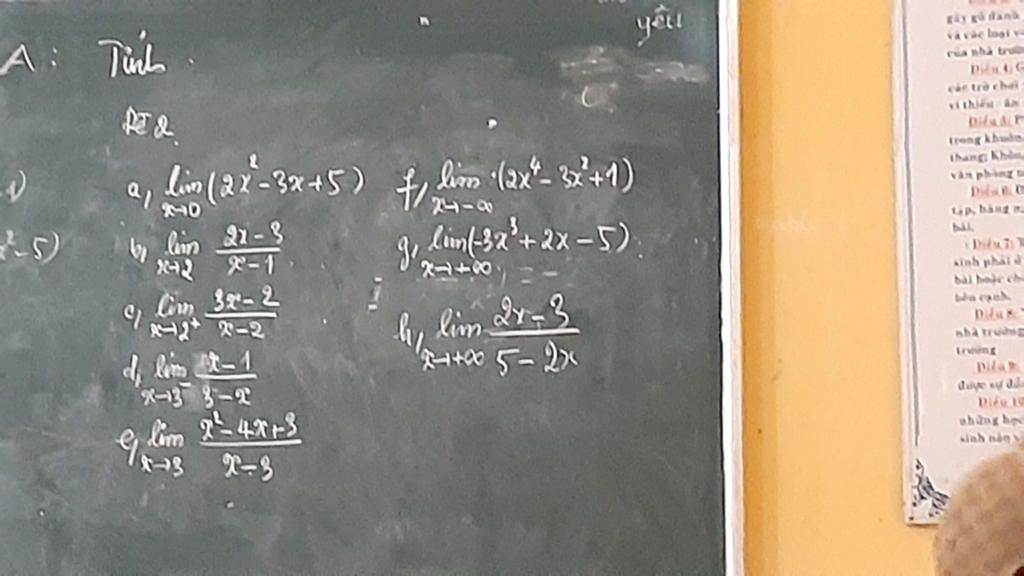 yếu
A: Tính
BT2.
a, lim x→0 (2x² - 3x + 5)
b, lim x→2 2x - 3 / x - 1
c, lim x→2⁺ 3x - 2 / x - 2
d, lim x→3⁻ x - 1 / 3 - x
e, lim x→3 x² - 4x + 3 / x - 3
f, lim x→-∞ (2x⁴ - 3x² + 1)
g, lim x→+∞ (-3x³ + 2x - 5)
h, lim x→+∞ 2x - 3 / 5 - 2x
² - 5)
gây gổ đánh
và các loại
của nhà trườn
Điều 4:
các trò chơi
vi thiếu
Điều 5:
trong khuôn
thang; Không
văn phòng
Điều 6:
tập, bảng
bài.
Điều 7:
sinh phải ở
bài hoặc
bên cạnh.
Điều 8:
nhà trường
trường
Điều 9:
được sự
Điều 10
những học
sinh nào